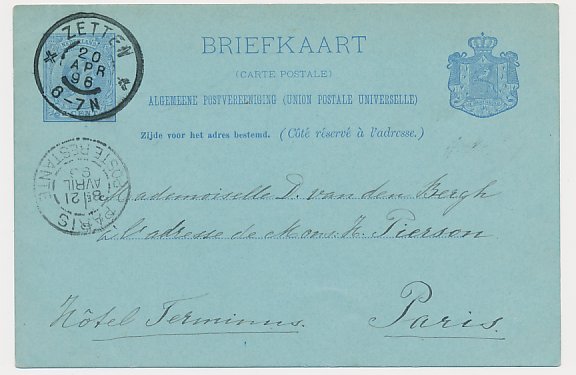 ZETTEN
20
APR
96
6-7N
BRIEFKAART
(CARTE POSTALE)
ALGEMEENE POSTVEREENIGING (UNION POSTALE UNIVERSELLE)
Zijde voor het adres bestemd. (Côté réservé à l'adresse.)
POSTE RESTANTE
21
AVRIL
PARIS
Mademoiselle D. van den Bergh
à l'adresse de Mons. H. Pierson
Hôtel Terminus.
Paris.